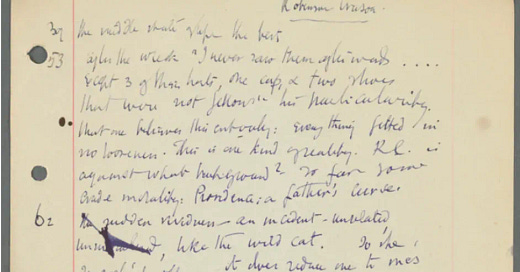 Robinson Crusoe.
39 the middle state of life the best
53 after the wreck "I never saw them afterwards ....
except 3 of their hats, one cap, & two shoes
that were not fellows" his particularity.
that one believes this entirely: everything fitted in
no looseness. This is one kind of reality. R.C. is
against what background? so far some
crude morality: Providence: a father's curse.
62 sudden vividness – an incident – unrelated,
like the wild cat. So she
it does reduce one to ones